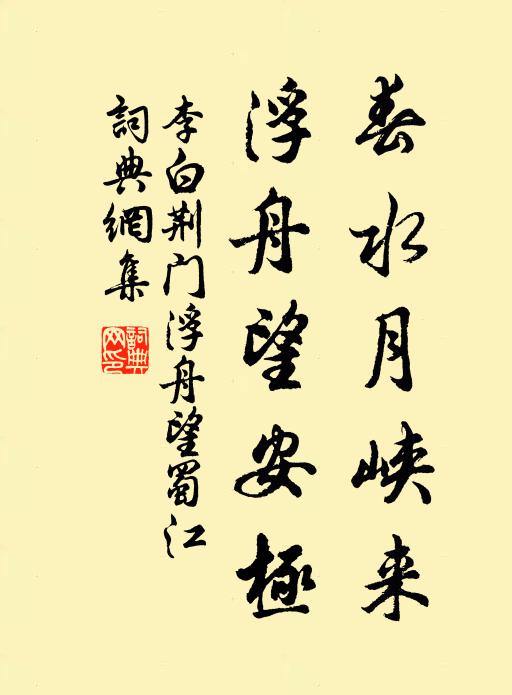 春水月峡来
浮舟望安極
李白荆门浮舟望蜀江
詞典網集
詞典
网印